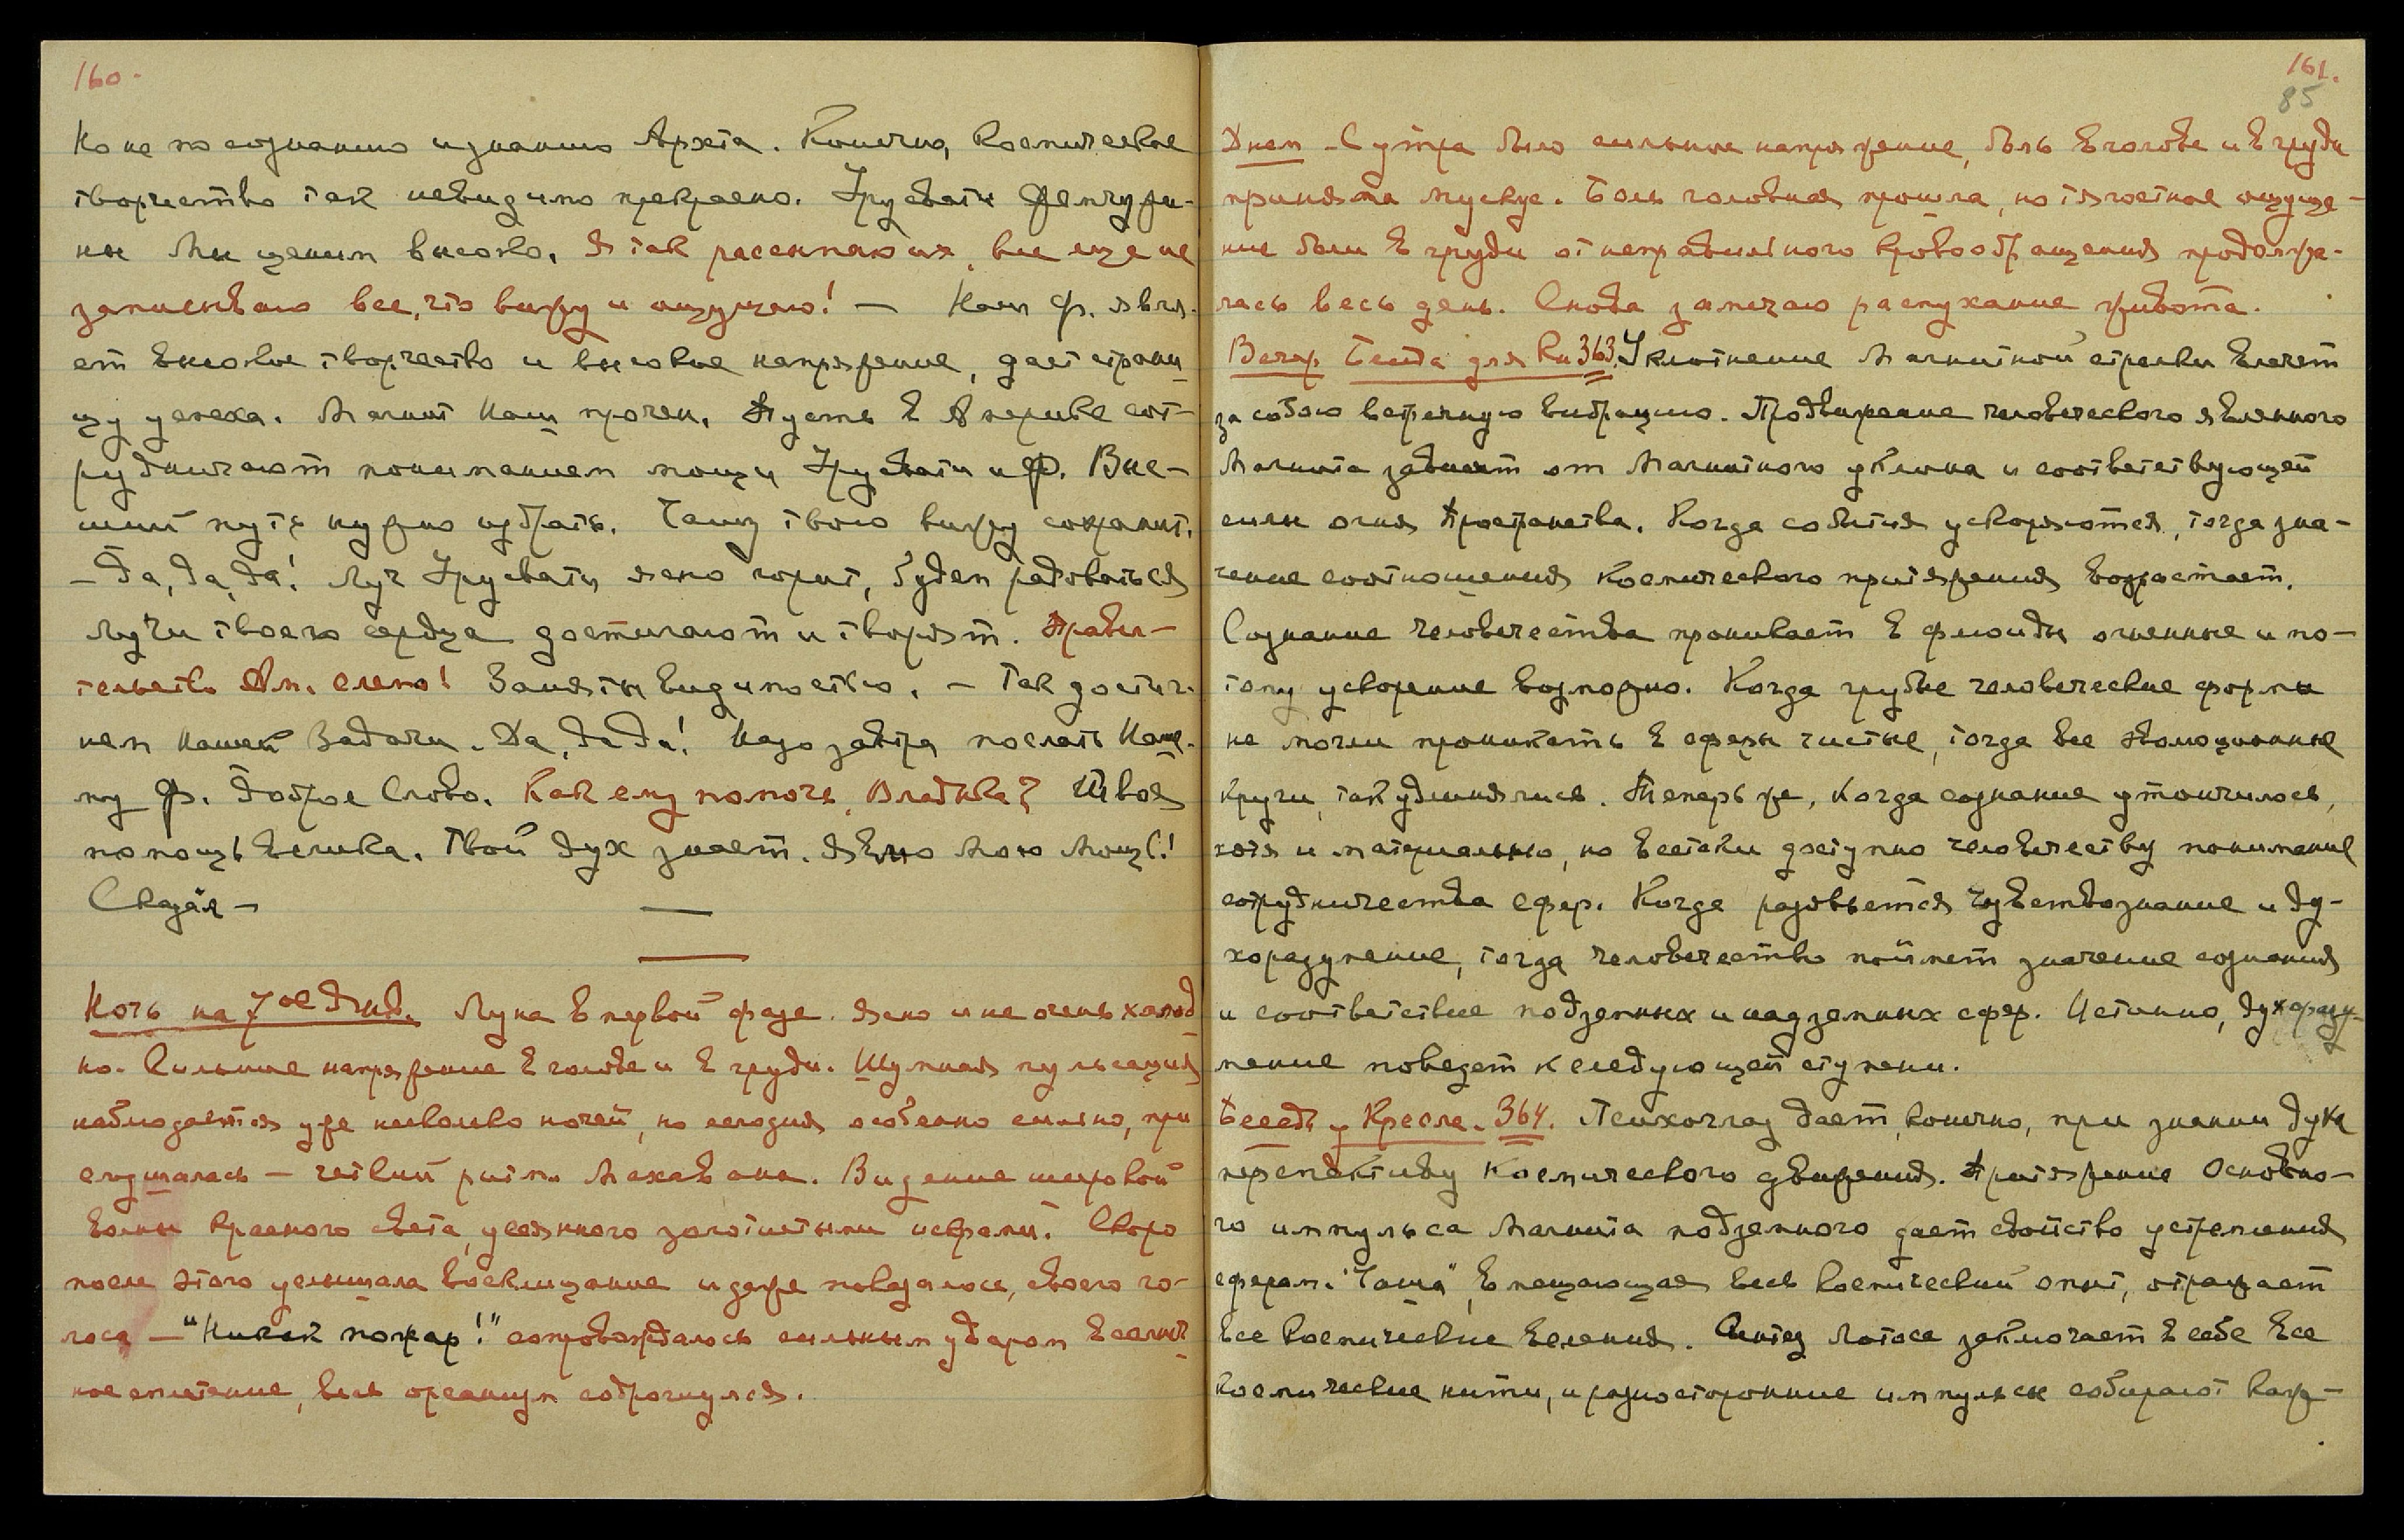 160.
Но не по сознанию и знанию Архата. Конечно, космическое
творчество так невидимо прекрасно. Урусвати жемчужи-
ны Мы ценим высоко. Я так рассеиваюсь, все еще не
записываю все, что вижу и ощущаю! — Наш Ф. явля-
ет высокое творчество и высокое напряжение, дает страни
цу успеха. Магнит Наш прочен. Пусть в Америке сот-
рудничают пониманием мощи Урусвати и Ф. Выс-
ший путь нужно избрать. Чашу твою вижу сохранит.
— Да, да, да! Луч Урусвати ясно горит, будем радоваться
Лучи твоего сердца достигают и творят. Правил-
тельство Ам. слепо! Заняты видимостью. — Так достиг-
нем Нашей Задачи. Да, да да! Надо завтра послать Наше-
му Ф. доброе Слово. Как ему помочь, Владыка? Твоя
помощь велика. Твой дух знает. Явлю Мою Мощь!
Сказал —
Ночь на 7ое Янв. Луна в первой фазе. Ясно и не очень холод
но. Сильное напряжение в голове и в груди. Шумная пульсация
наблюдается уже несколько ночей, но сегодня особенно сильно, при
слушалась — четкий ритм Махавана. Видение широкой
волны красного света, усеянного золотистыми искрами. Скоро
после этого услышала восклицание и даже показалось, своего го-
лоса — "Никак пожар!" сопровождалось сильным ударом в солнеч
ное сплетение, весь организм содрогнулся.
161.
85
Днем — С утра было сильное напряжение, боль в голове и в груди
принята мускус. Боль головная прошла, но тягостное ощуще-
ние боли в груди от неправильного кровообращения продолжа-
лось весь день. Снова замечаю распухание живота.
Вечер. Беседа для Кн 363. Уклонение Магнитной стрелки влечет
за собою встречную вибрацию. Продвижение человеческого явленного
Магнита зависит от Магнитного уклона и соответствующей
силы огня Пространства. Когда события ускоряются, тогда зна-
чение соотношения космического притяжения возрастает.
Сознание человечества проникает в флюиды огненные и по-
тому ускорение возможно. Когда грубые человеческие формы
не могли проникать в сферы чистые, тогда все эволюционные
круги, так удлинялись. Теперь же, когда сознание утончилось,
хотя и материально, но всетаки доступно человечеству понимание
сотрудничества сфер. Когда разовьется чувствознание и ду-
хоразумение, тогда человечество поймет значение сознания
и соответствие подземных и надземных сфер. Истинно, духоразу-
мение поведет к следующей ступени.
Беседа у Кресла. 364. Психоглаз дает, конечно, при знании духа
перспективу Космического движения. Притяжение Основно-
го импульса Магнита подземного дает свойство устремления
сферам. "Чаша", вмещающая весь космический опыт, отражает
все космические веления. Синтез Лотоса заключает в себе все
космические нити, и разносторонние импульсы собирают каж-